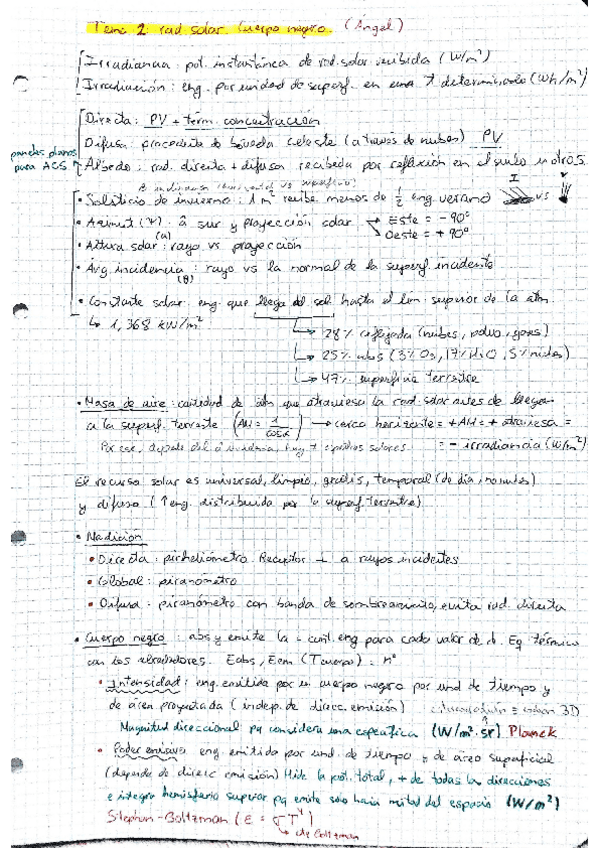 Tema 2: rad. solar. Cuerpo negro. (Angel)
Irradiancia: pot. instantánea de rad. solar recibida (W/m²)
Irradiación: eng. por unidad de superf. en una t determinado (Wh/m²)
Directa: PV + term. concentración
Difusa: procedente de bóveda celeste (a través de nubes) PV
paneles planos para ACS
Albedo: rad. directa + difusa recibida por reflexión en el suelo u otros.
• Solsticio de invierno: 1 m² recibe menos de 1/2 eng. verano I vs V
• Azimut (Ψ): â sur y proyección solar → Este = - 90º
→ Oeste = + 90º
• Altura solar (α): rayo vs proyección
• Ang. incidencia (θ): rayo vs la normal de la superf. incidente
• Constante solar: eng que llega del sol hasta el lim. superior de la atm
↳ 1,368 kW/m²
→ 28% reflejada (nubes, polvo, gases)
→ 25% abs (3% O₃, 17% H₂O, 5% nubes)
→ 47% superficie terrestre
• Masa de aire: cantidad de atm que atraviesa la rad. solar antes de llegar
a la superf. terrestre (AM = 1/cosα) → cerca horizonte = + AM = + atraviesa =
= - irradiancia (W/m²)
El recurso solar es universal, limpio, gratis, temporal (de día, no nubes)
y difuso (↑ eng. distribuida por la superf. terrestre)
• Medición
• Directa: pirheliómetro Receptor ⊥ a rayos incidentes
• Global: piranómetro
• Difusa: piranómetro con banda de sombreamiento, evita rad. directa
• Cuerpo negro: abs y emite la = cant. eng para cada valor de λ. Eq térmico
con los alrededores. Eabs, Eem (Tcuerpo) = nº
• Intensidad: eng. emitida por un cuerpo negro por und de tiempo y
de área proyectada (indep. de direcc. emisión)
Magnitud direccional pq considera una específica (W/m².sr) Planck
• Poder emisivo: eng. emitida por und. de tiempo y de área superficial
(depende de direcc emisión) Mide la pot. total, + de todas las direcciones
e integra hemisferio superior pq emite solo hacia mitad del espacio (W/m²)
Stephan-Boltzman (E = σT⁴)
↳ cte Boltzman